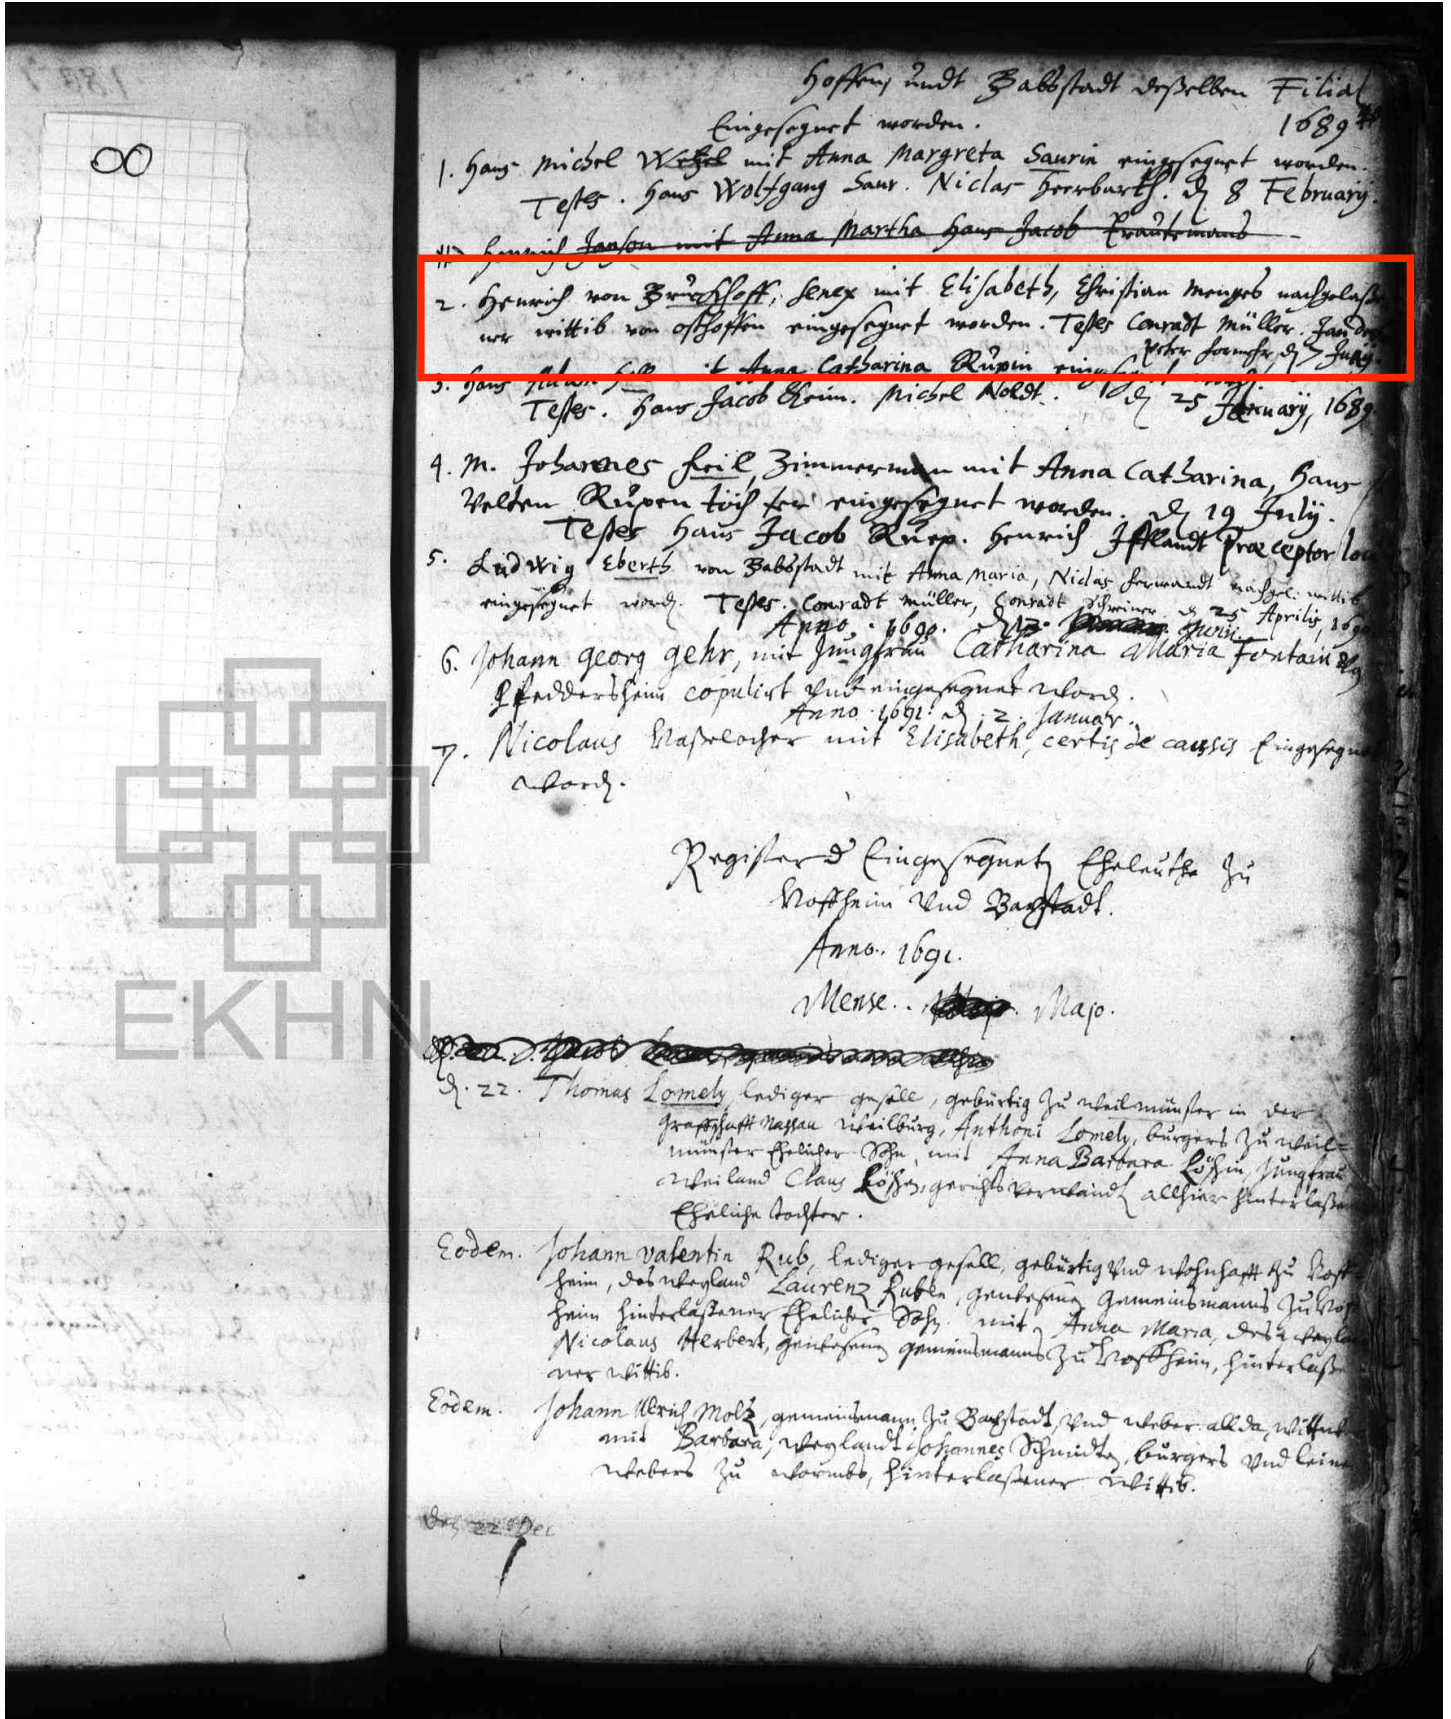 Hoffen, undt Babbstadt deßelben Filial
Eingesegnet worden. 1689
1. Hans Michel Wetzel mit Anna Margreta Saurin eingesegnet worden.
Testes. Hans Wolfgang Saur. Niclas Heerbarth. d 8 February.
Henrich Janson mit Anna Martha Hans Jacob
2. Henrich von Bruckhoff, senex mit Elisabeth, Christian Menges nachgelaße
ner wittib von osthoffen eingesegnet worden. Testes Conradt Müller.
Peter
3. Hans mit Anna Catharina Rupin
Testes. Hans Jacob Michel Noldt. d 25 1689
4. M. Johannes Keil, Zimmerman mit Anna Catharina, Hans
Velten Rupen töchter eingesegnet worden. d 19 July.
Testes Hans Jacob Ruep. Henrich Ifflandt Præceptor
5. Ludwig Eberth von Babbstadt mit Anna Maria, Niclas nachgel. wittib
eingesegnet word. Testes. Conradt Müller, Conradt Schreiner d 25 Aprilis, 1690
Anno . 1690. d 13. Junii.
6. Johann Georg Gehr, mit Jungfrau Catharina Maria Fontain
Pfeddersheim copulirt und eingesegnet word.
Anno . 1691. d. 2. Januar.
7. Nicolaus mit Elisabeth, certis de caussis Eingesegnet
word.
Register d Eingesegneten Eheleuthe zu
und
Anno. 1691.
Mense. Majo.
d. 22. Thomas Lomely, lediger gesell, gebürtig zu Weilmünster in der
Graffschafft Nassau Weilburg, Anthoni Lomely, burgers zu Weil=
münster Ehelicher Sohn, mit Anna Barbara Jungfrau
Weiland Claus gerichts verwandt allhier hinterlaßen
Eheliche Tochter.
Eodem. Johann Valentin Rub, lediger gesell, gebürtig und wohnhafft zu
heim, des weyland Laurenz Ruben, gewesenen Gemeinsmanns zu
heim hinterlaßener Ehelicher Sohn mit Anna Maria, des weyland
Nicolaus Herbert, gewesenen gemeinsmanns zu hinterlaße
ner wittib.
Eodem. Johann Ulrich Moltz, gemeinsmann zu und weber allda, wittwer
mit Barbara, weylandt Johannes Schmidten, burgers und leine
webers zu wormbs, hinterlaßener wittib.
Den 22 Dec
EKHN